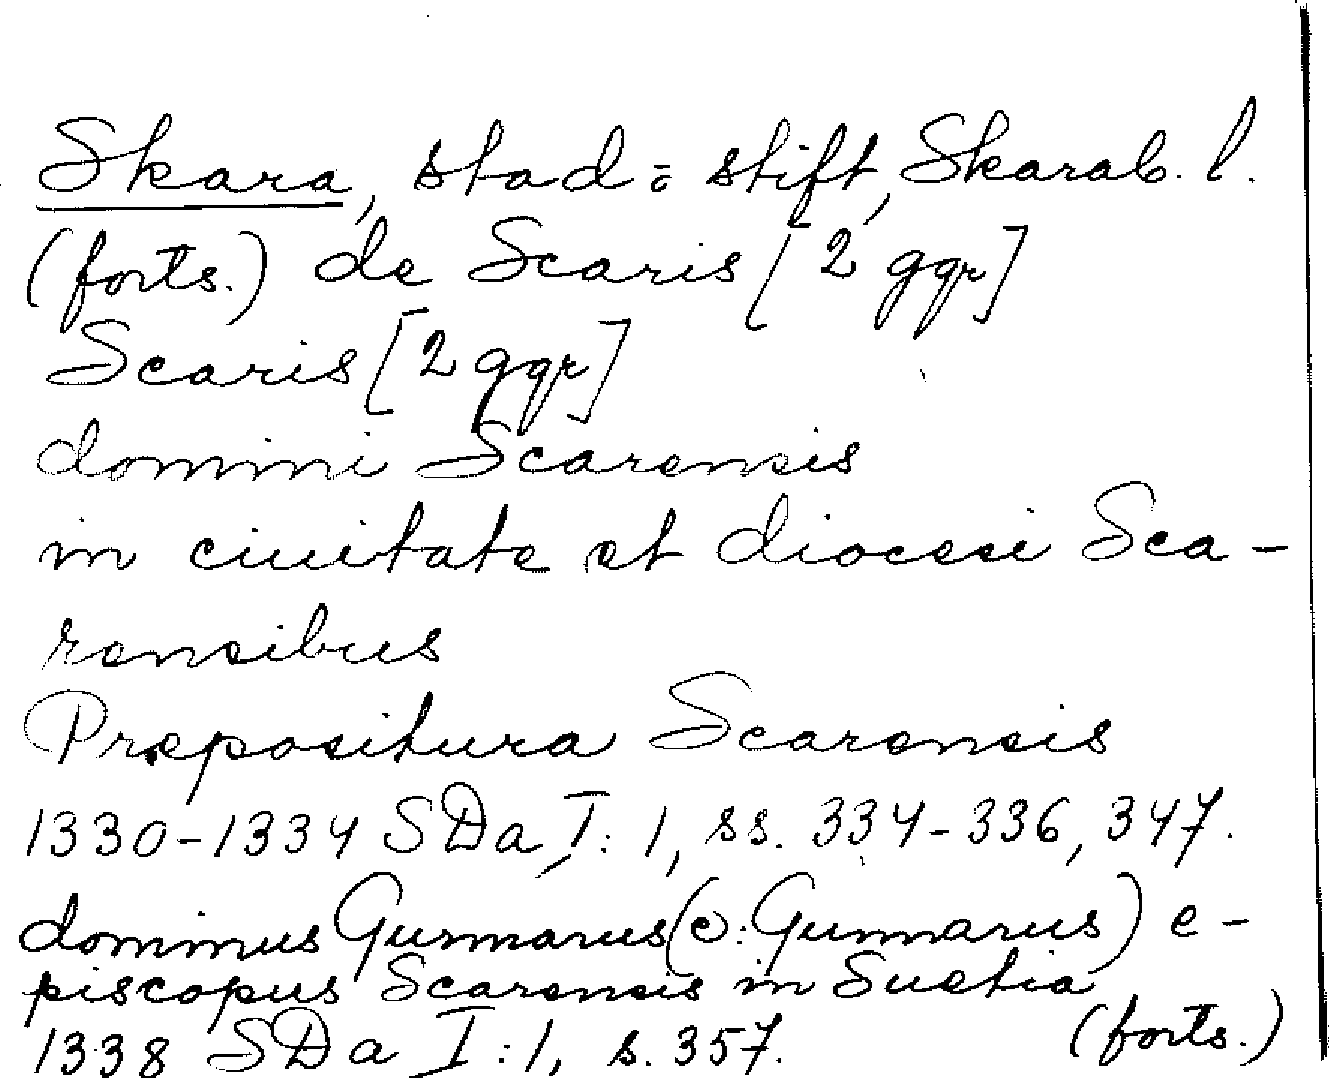 Skara, stad o. stift, Skarab. l.
(forts.) de Scaris [2 ggr]
Scaris [2 ggr]
domini Scarensis
in ciuitate et diocesi Sca-
rensibus
Præpositura Scarensis
1330-1334 SDa, I: 1, ss. 334-336, 347.
dominus Gurmarus (ɔ: Gunnarus) e-
piscopus Scarensis in Suetia
1338 SDa I:1, s. 357. (forts.)